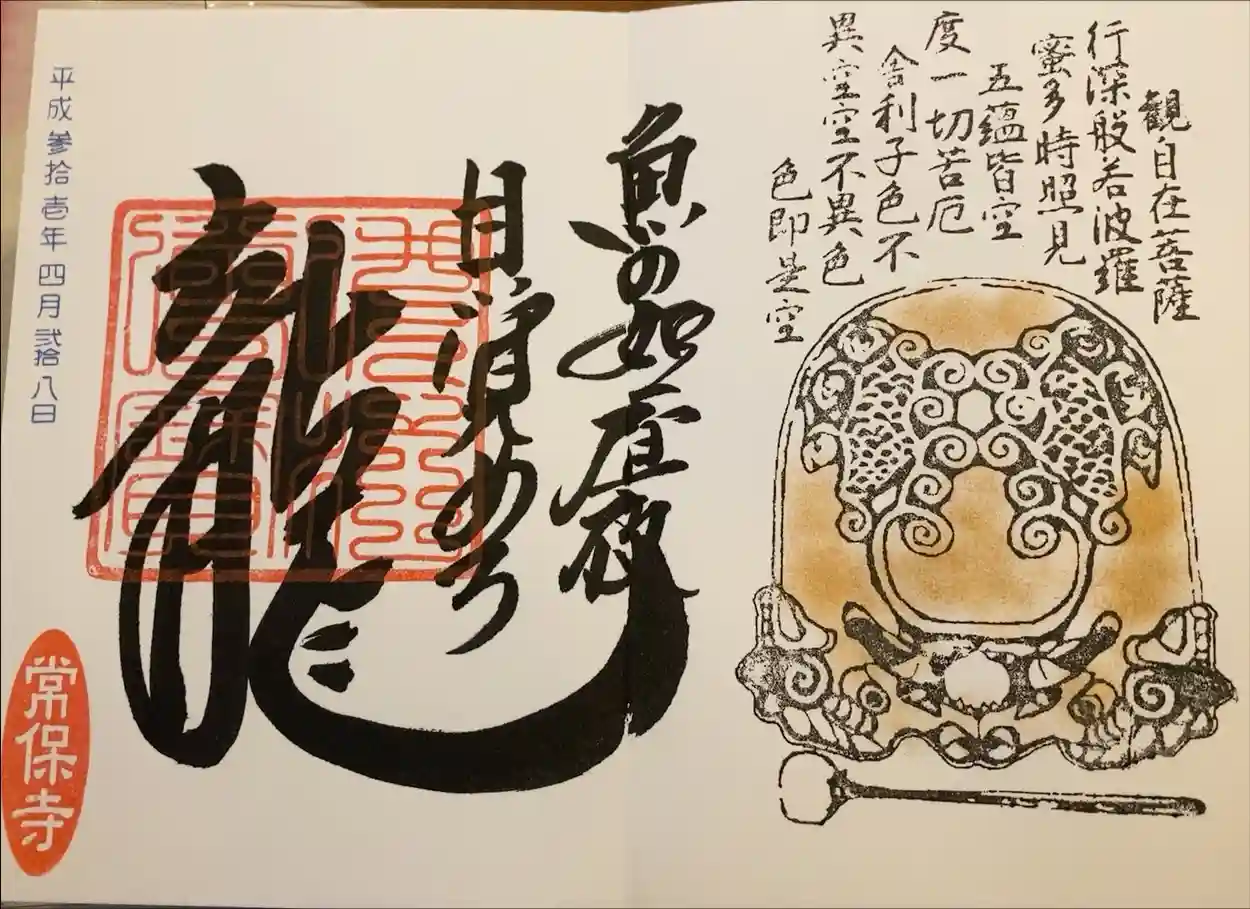 観自在菩薩
行深般若波羅
蜜多時照見
五蘊皆空
度一切苦厄
舎利子色不
異空空不異色
色即是空
魚の如
龍
平成参拾壱年四月弐拾八日
常保寺